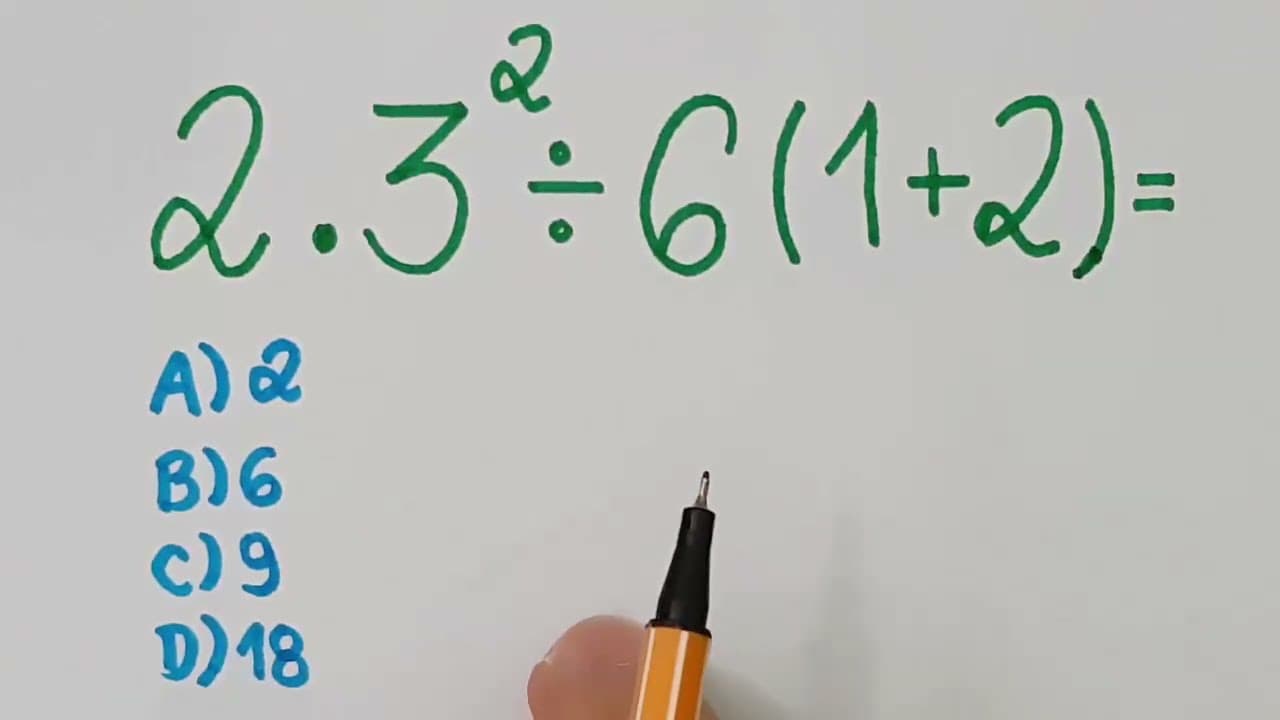 2.3² ÷ 6(1+2)=
A) 2
B) 6
C) 9
D) 18